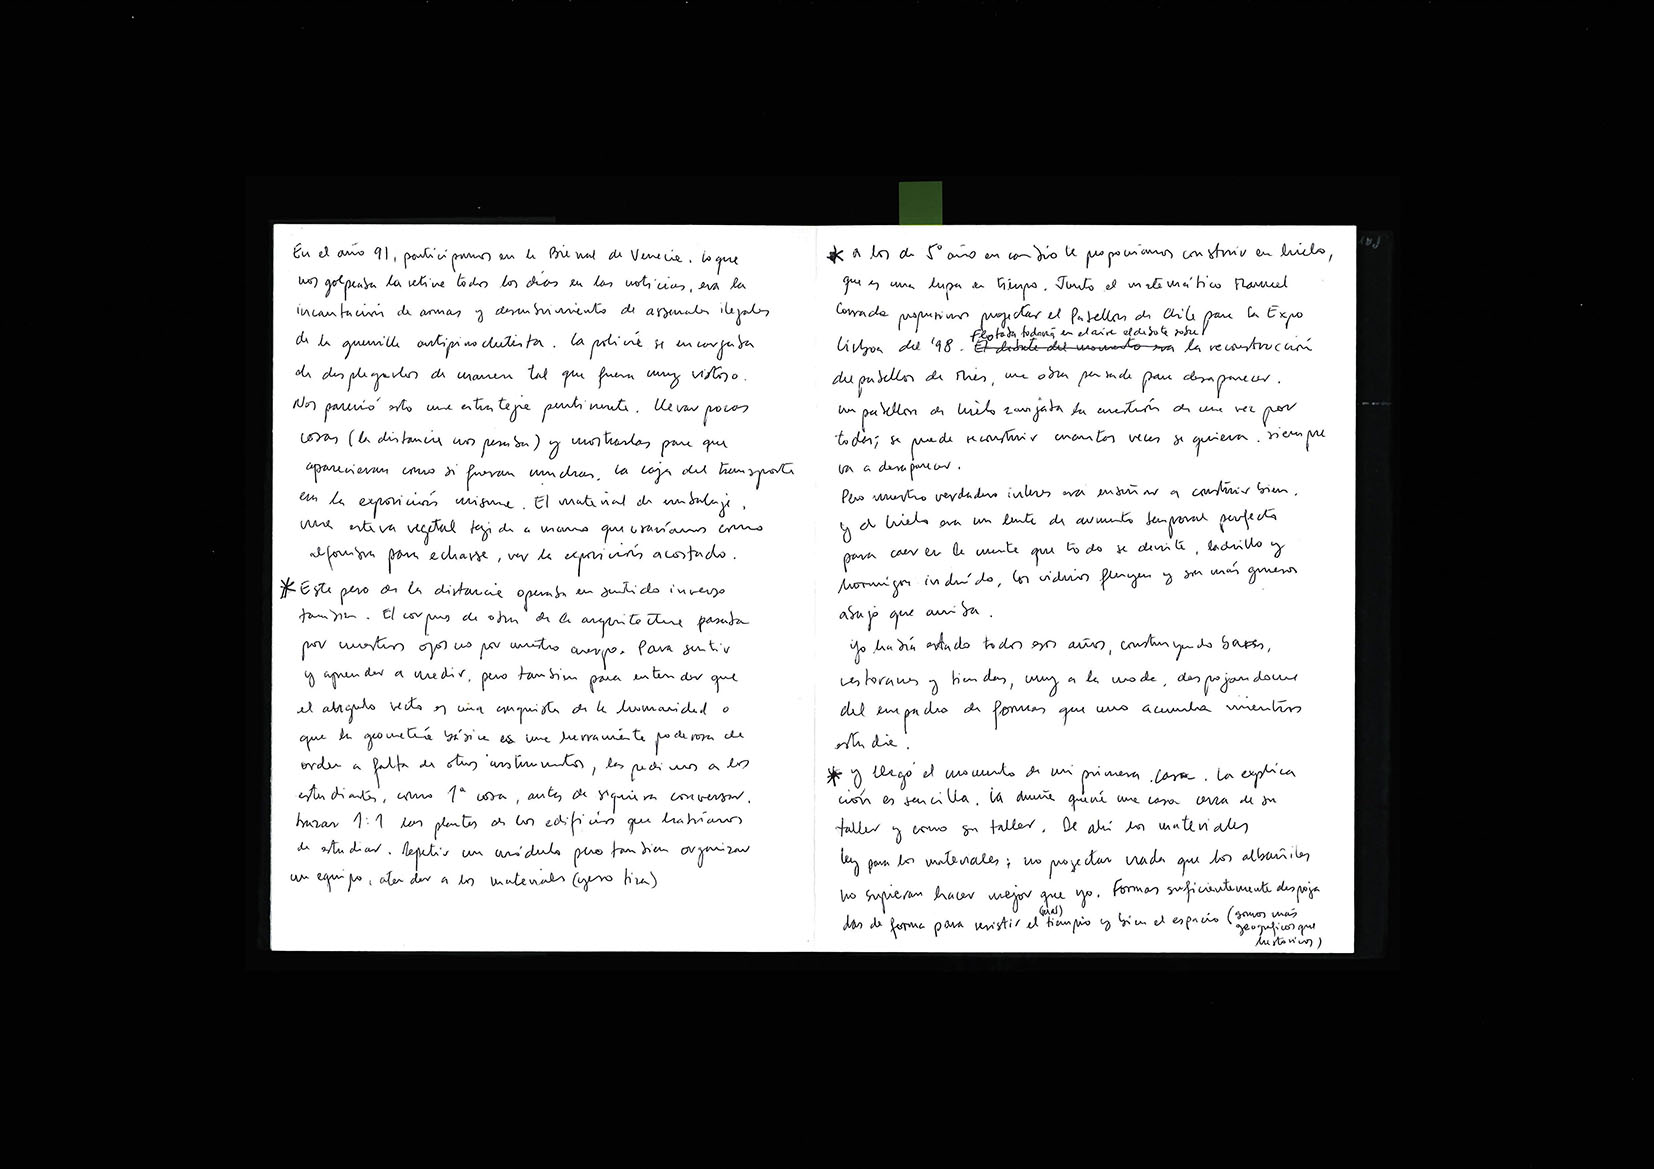 En el año 91, participamos en la Bienal de Venecia. Lo que
nos golpeaba la retina todos los días en las noticias, era la
incautación de armas y descubrimiento de arsenales ilegales
de la guerrilla antipinochetista. La policía se encargaba
de desplegarlos de manera tal que fuera muy vistoso.
Nos pareció esto una estrategia pertinente. Llevar pocas
cosas (la distancia nos pesaba) y mostrarlas para que
aparecieran como si fueran muchas. La caja del transporte
era la exposición misma. El material de embalaje,
una estera vegetal tejida a mano que usaríamos como
alfombra para echarse, ver la exposición acostado.
* Este peso de la distancia operaba en sentido inverso
tambien. El corpus de obra de la arquitectura pasaba
por nuestros ojos no por nuestro cuerpo. Para sentir
y aprender a medir, pero tambien para entender que
el angulo recto es una conquista de la humanidad o
que la geometría básica es una herramienta poderosa de
orden a falta de otros instrumentos, les pedimos a los
estudiantes, como 1ª cosa, antes de siquiera conversar,
trazar 1:1 las plantas de los edificios que habríamos
de estudiar. Repetir un módulo pero tambien organizar
un equipo, atender a los materiales (yeso tiza)
* a los de 5º año en cambio le proponíamos construir en hielo,
que es una lupa en tiempo. Junto al matemático Manuel
Corrada propusimos proyectar el Pabellon de Chile para la Expo
Flotaba todavía en el aire el debate sobre
Lisboa del '98. El debate del momento era la reconstrucción
del pabellon de Mies, una obra pensada para desaparecer.
un pabellon de hielo zanjaba la cuestión de una vez por
todas; se puede reconstruir cuantas veces se quiera. siempre
va a desaparecer.
Pero nuestro verdadero interes era enseñar a construir bien.
y el hielo era un lente de aumento temporal perfecto
para caer en la cuenta que todo se derrite, ladrillo y
hormigon incluído, los vidrios fluyen y son más gruesos
abajo que arriba.
Yo había estado todos esos años, construyendo bares,
restoranes y tiendas, muy a la moda, despojandome
del empacho de formas que uno acumula mientras
estudia.
* y llegó el momento de mi primera casa. La explica
ción es sencilla. La dueña quería una casa cerca de su
taller y como su taller. De ahí los materiales
ley para los materiales; no proyectar nada que los albañiles
no supieran hacer mejor que yo. Formas suficientemente despoja
das de forma para resistir el tiempo y bien el espacio (somos más
geograficos que
historicos)